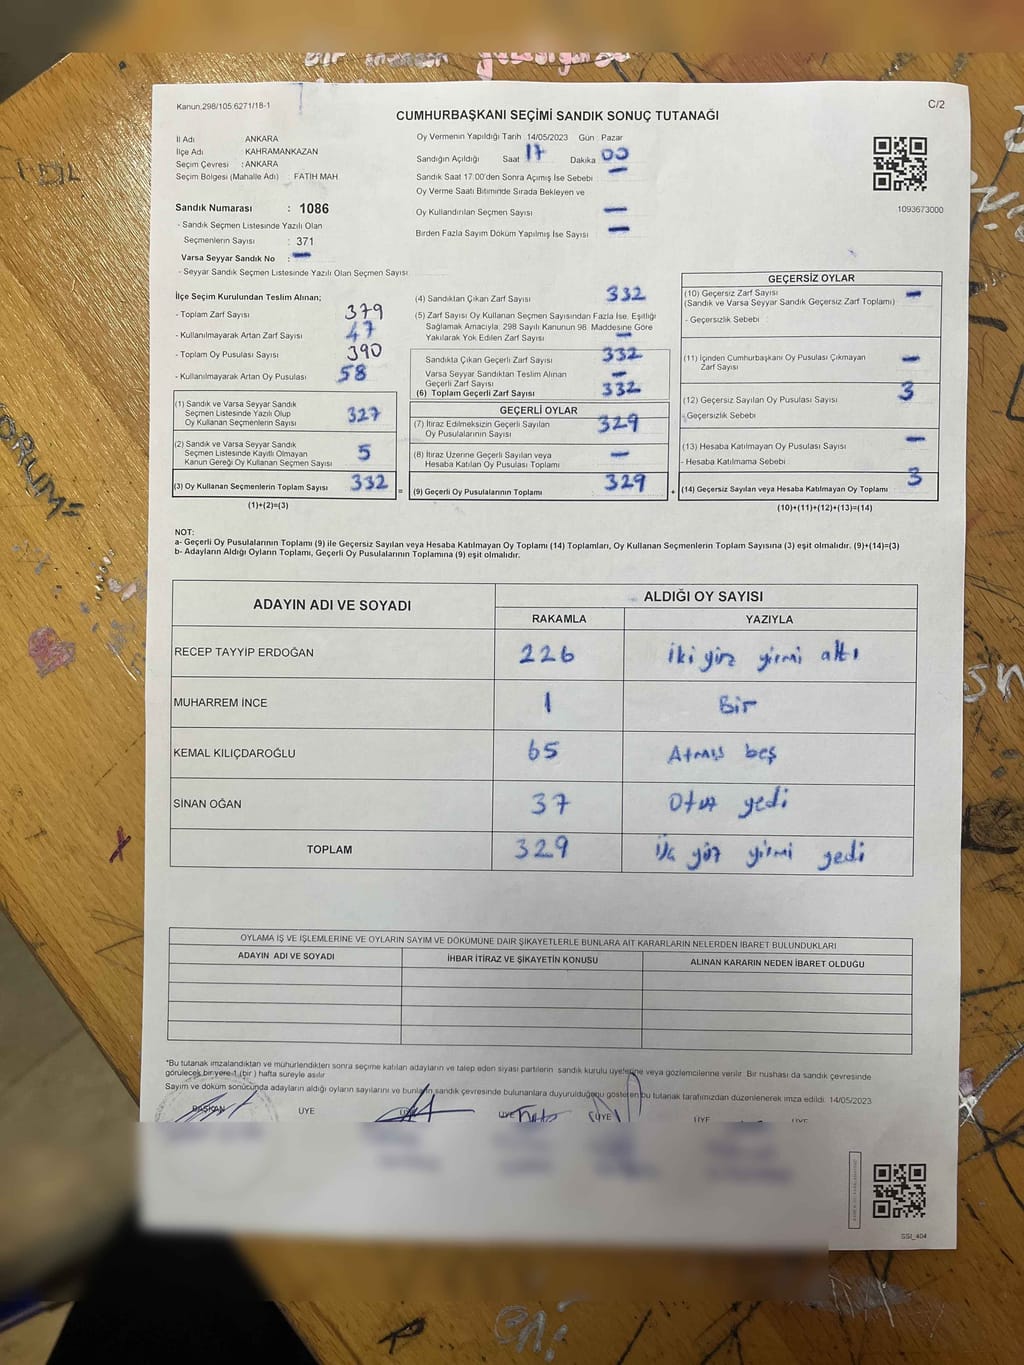 Kanun,298/105.6271/18-1
C/2
CUMHURBAŞKANI SEÇİMİ SANDIK SONUÇ TUTANAĞI
İl Adı ANKARA
İlçe Adı KAHRAMANKAZAN
Seçim Çevresi : ANKARA
Seçim Bölgesi (Mahalle Adı) : FATİH MAH
Sandık Numarası : 1086
- Sandık Seçmen Listesinde Yazılı Olan
Seçmenlerin Sayısı : 371
Varsa Seyyar Sandık No : —
- Seyyar Sandık Seçmen Listesinde Yazılı Olan Seçmen Sayısı
Oy Vermenin Yapıldığı Tarih 14/05/2023 Gün : Pazar
Sandığın Açıldığı Saat 17 Dakika 00
Sandık Saat 17:00'den Sonra Açımış İse Sebebi —
Oy Verme Saati Bitiminde Sırada Bekleyen ve
Oy Kullandırılan Seçmen Sayısı —
Birden Fazla Sayım Döküm Yapılmış İse Sayısı —
1093673000
İlçe Seçim Kurulundan Teslim Alınan;
- Toplam Zarf Sayısı 379
- Kullanılmayarak Artan Zarf Sayısı 47
- Toplam Oy Pusulası Sayısı 390
- Kullanılmayarak Artan Oy Pusulası 58
(1) Sandık ve Varsa Seyyar Sandık
Seçmen Listesinde Yazılı Olup
Oy Kullanan Seçmenlerin Sayısı 327
(2) Sandık ve Varsa Seyyar Sandık
Seçmen Listesinde Kayıtlı Olmayan
Kanun Gereği Oy Kullanan Seçmen Sayısı 5
(3) Oy Kullanan Seçmenlerin Toplam Sayısı 332
(1)+(2)=(3)
=
(4) Sandıktan Çıkan Zarf Sayısı 332
(5) Zarf Sayısı Oy Kullanan Seçmen Sayısından Fazla İse, Eşitliği
Sağlamak Amacıyla; 298 Sayılı Kanunun 98. Maddesine Göre
Yakılarak Yok Edilen Zarf Sayısı —
Sandıkta Çıkan Geçerli Zarf Sayısı 332
Varsa Seyyar Sandıktan Teslim Alınan
Geçerli Zarf Sayısı —
(6) Toplam Geçerli Zarf Sayısı 332
GEÇERLİ OYLAR
(7) İtiraz Edilmeksizin Geçerli Sayılan
Oy Pusulalarının Sayısı 329
(8) İtiraz Üzerine Geçerli Sayılan veya
Hesaba Katılan Oy Pusulası Toplamı —
(9) Geçerli Oy Pusulalarının Toplamı 329
+
GEÇERSİZ OYLAR
(10) Geçersiz Zarf Sayısı —
(Sandık ve Varsa Seyyar Sandık Geçersiz Zarf Toplamı)
- Geçersizlik Sebebi
(11) İçinden Cumhurbaşkanı Oy Pusulası Çıkmayan
Zarf Sayısı —
(12) Geçersiz Sayılan Oy Pusulası Sayısı 3
Geçersizlik Sebebi
(13) Hesaba Katılmayan Oy Pusulası Sayısı —
- Hesaba Katılmama Sebebi
(14) Geçersiz Sayılan veya Hesaba Katılmayan Oy Toplamı 3
(10)+(11)+(12)+(13)=(14)
NOT:
a- Geçerli Oy Pusulalarının Toplamı (9) ile Geçersiz Sayılan veya Hesaba Katılmayan Oy Toplamı (14) Toplamları, Oy Kullanan Seçmenlerin Toplam Sayısına (3) eşit olmalıdır. (9)+(14)=(3)
b- Adayların Aldığı Oyların Toplamı, Geçerli Oy Pusulalarının Toplamına (9) eşit olmalıdır.
ADAYIN ADI VE SOYADI ALDIĞI OY SAYISI
RAKAMLA YAZIYLA
RECEP TAYYİP ERDOĞAN 226 iki yüz yirmi altı
MUHARREM İNCE 1 Bir
KEMAL KILIÇDAROĞLU 65 Atmış beş
SİNAN OĞAN 37 Otuz yedi
TOPLAM 329 üç yüz yirmi yedi
OYLAMA İŞ VE İŞLEMLERİNE VE OYLARIN SAYIM VE DÖKÜMÜNE DAİR ŞİKAYETLERLE BUNLARA AİT KARARLARIN NELERDEN İBARET BULUNDUKLARI
ADAYIN ADI VE SOYADI İHBAR İTİRAZ VE ŞİKAYETİN KONUSU ALINAN KARARIN NEDEN İBARET OLDUĞU
*Bu tutanak imzalandıktan ve mühürlendikten sonra seçime katılan adayların ve talep eden siyasi partilerin sandık kurulu üyelerine veya gözlemcilerine verilir. Bir nushası da sandık çevresinde
görülecek bir yere 1 (bir) hafta süreyle asılır
Sayım ve döküm sonucunda adayların aldığı oyların sayılarını ve bunların sandık çevresinde bulunanlara duyurulduğunu gösteren bu tutanak tarafımızdan düzenlenerek imza edildi. 14/05/2023
BAŞKAN ÜYE ÜYE ÜYE ÜYE ÜYE ÜYE
SSI_404